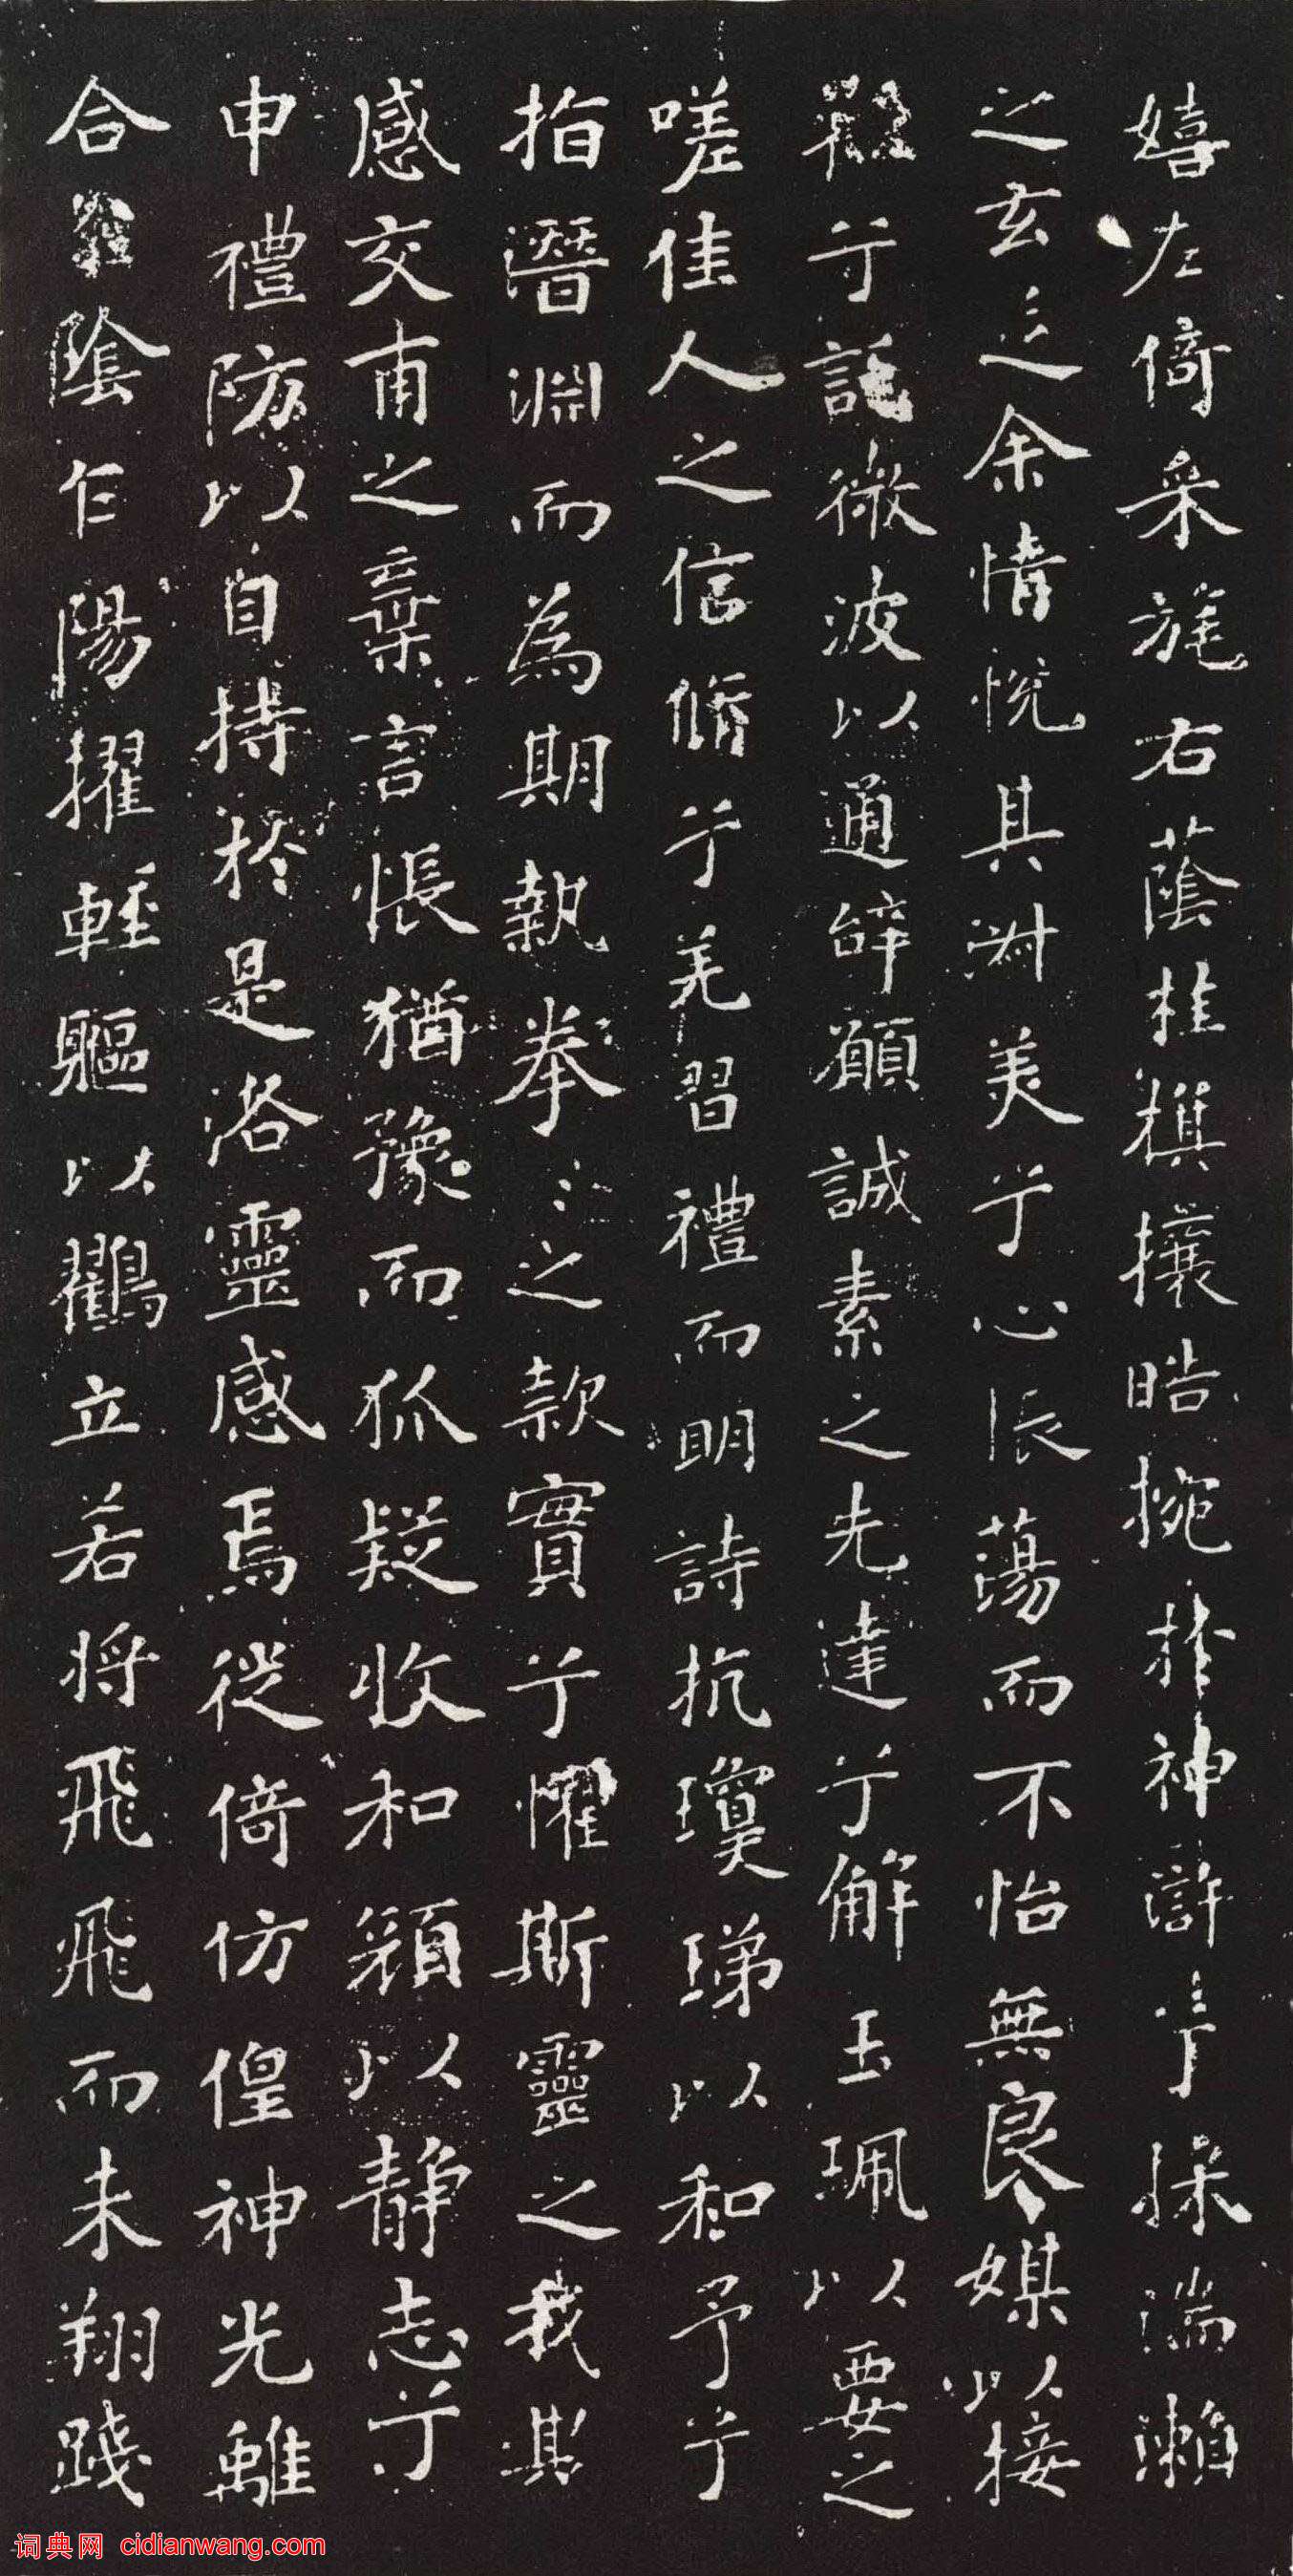 嬉左倚采旄右蔭桂旗攘皓捥於神滸兮採湍瀬
之玄芝余情悅其淑美兮心悵蕩而不怡無良媒以接
懽兮託微波以通辭願誠素之先達兮解玉珮以要之
嗟佳人之信脩兮羌習禮而明詩抗瓊珶以和予兮
指潛淵而為期執拳〻之款實兮懼斯靈之我欺
感交甫之棄言悵猶豫而狐疑收和顏以靜志兮
申禮防以自持於是洛靈感焉徙倚仿偟神光離
合陰乍陽擢輕軀以鶴立若將飛飛而未翔踐
词典网 cidianwang.com